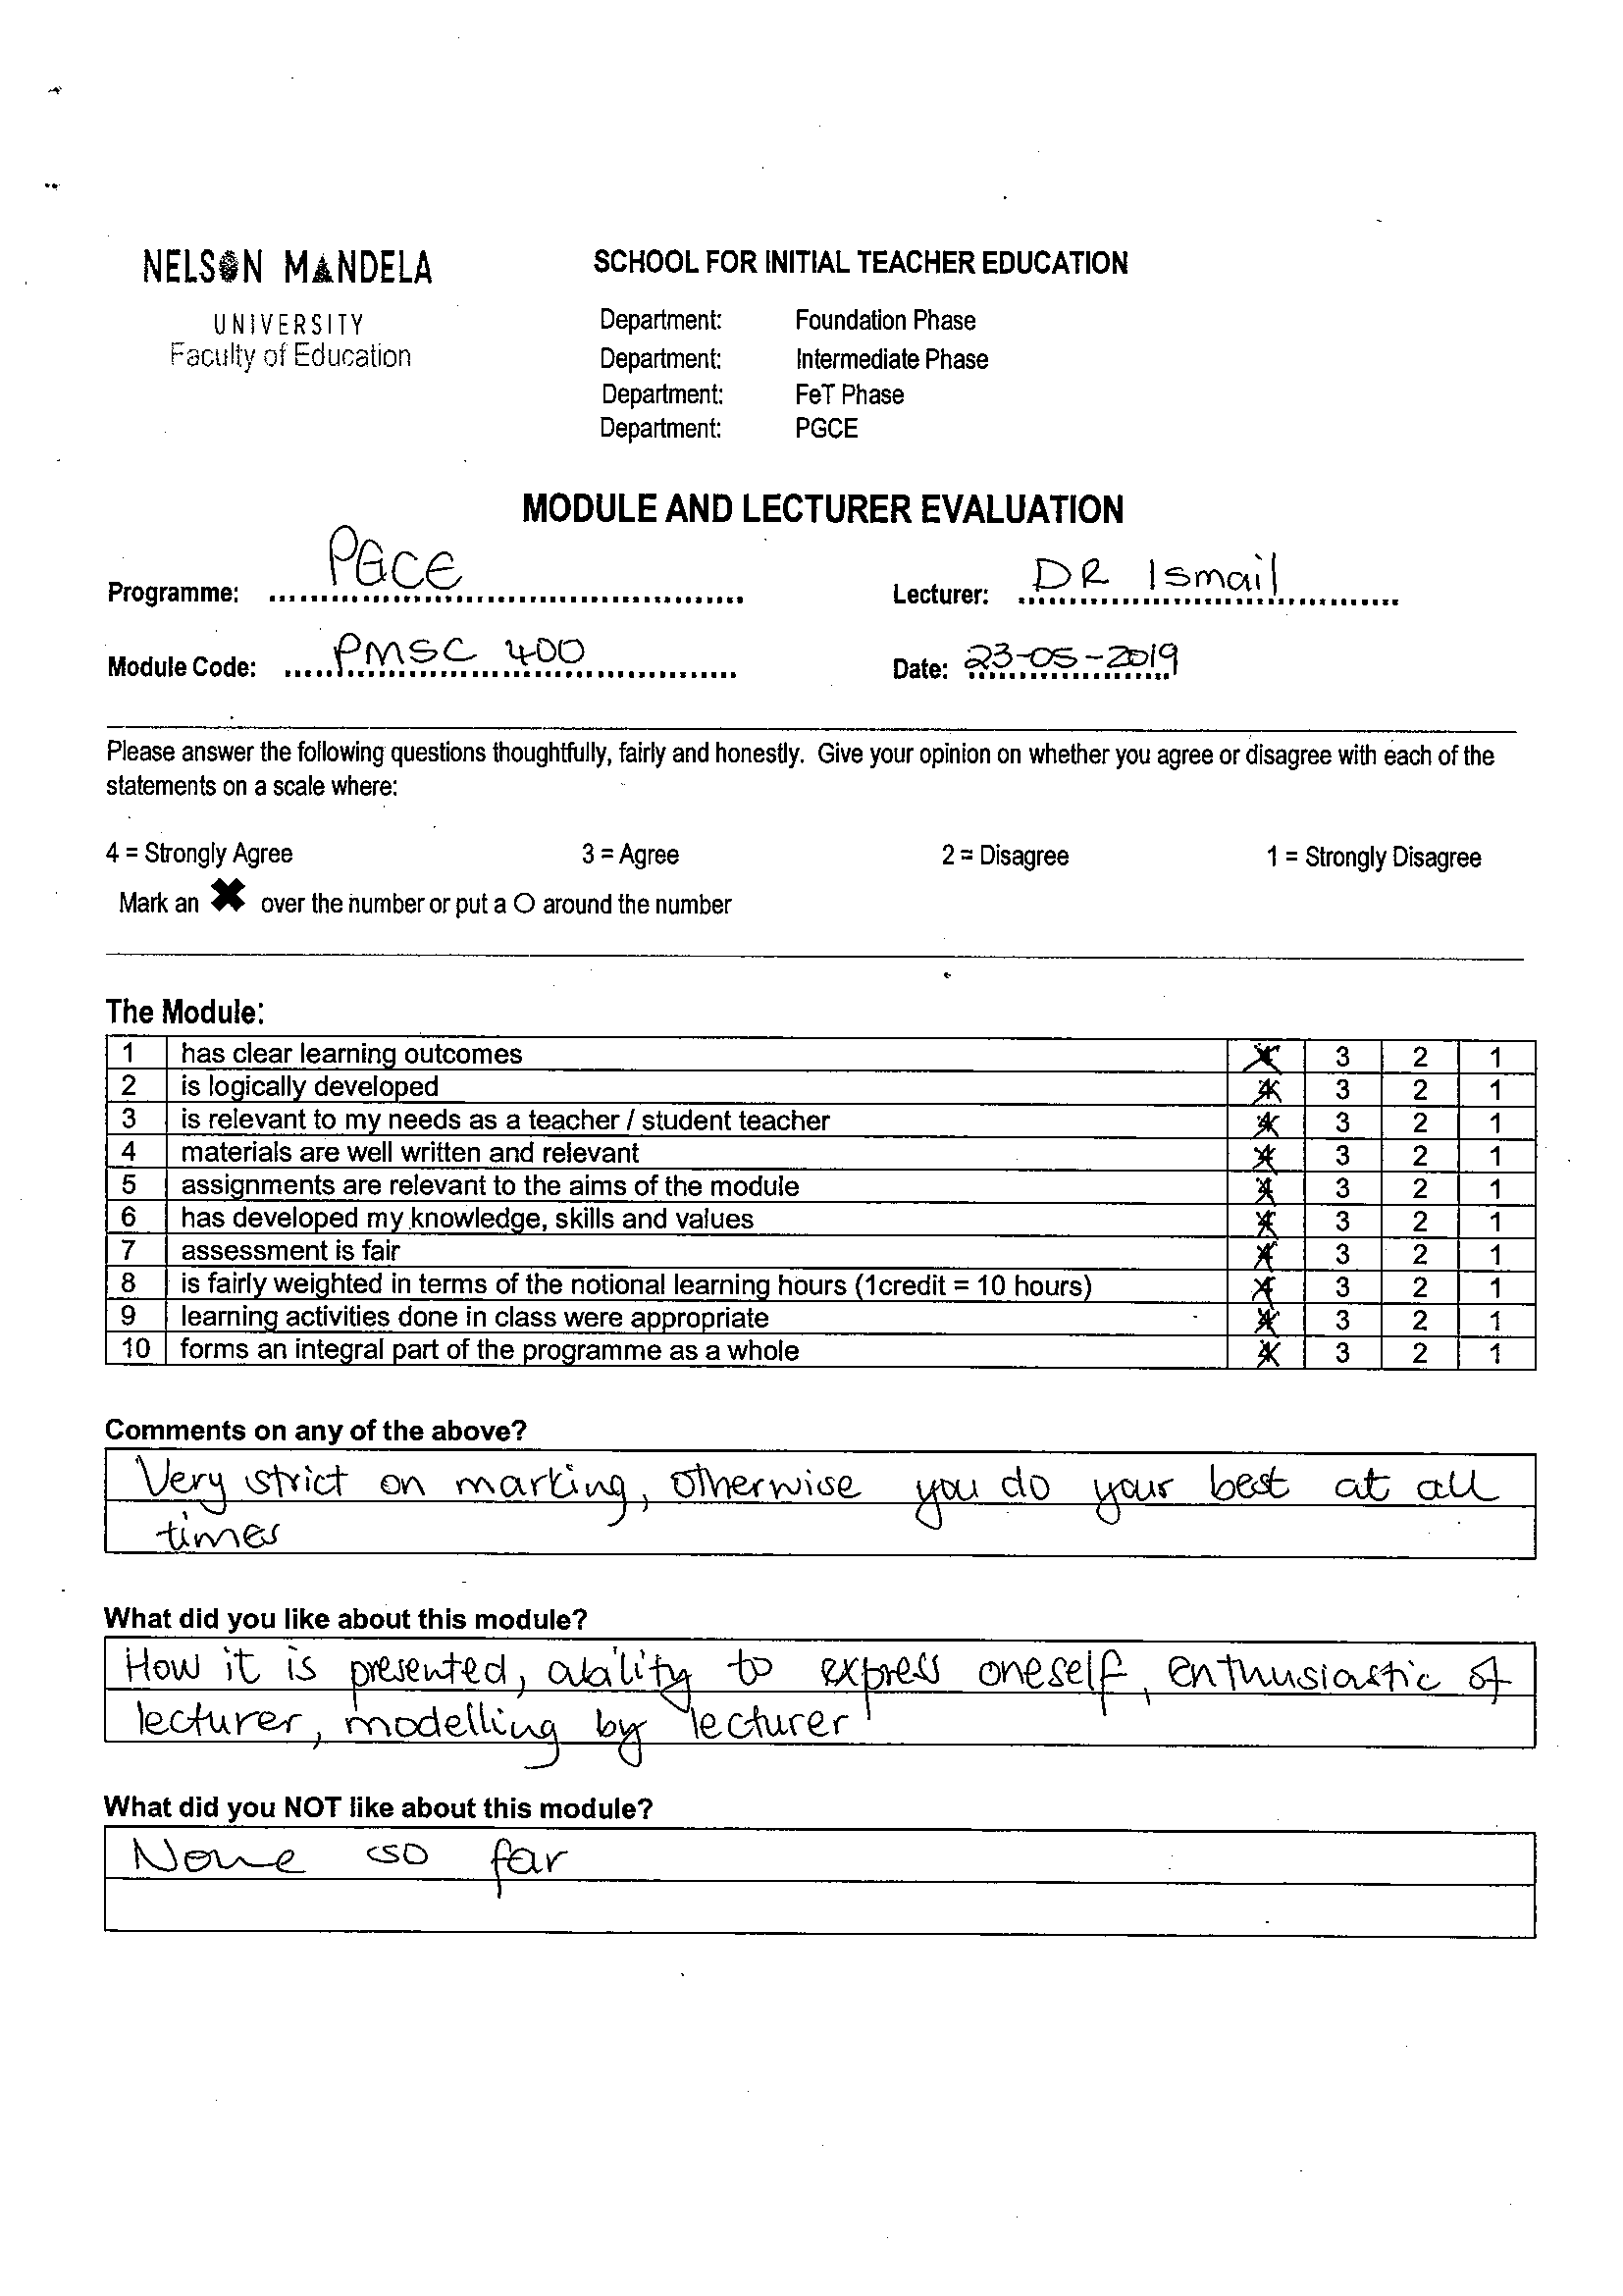 NELSON MANDELA
UNIVERSITY
Faculty of Education
SCHOOL FOR INITIAL TEACHER EDUCATION
Department: Foundation Phase
Department: Intermediate Phase
Department: FeT Phase
Department: PGCE
MODULE AND LECTURER EVALUATION
Programme: PGCE Lecturer: DR Ismail
Module Code: PMSC 400 Date: 23-05-2019
Please answer the following questions thoughtfully, fairly and honestly. Give your opinion on whether you agree or disagree with each of the
statements on a scale where:
4 = Strongly Agree 3 = Agree 2 = Disagree 1 = Strongly Disagree
Mark an ✖ over the number or put a O around the number
The Module:
1 has clear learning outcomes 4 3 2 1
2 is logically developed 4 3 2 1
3 is relevant to my needs as a teacher / student teacher 4 3 2 1
4 materials are well written and relevant 4 3 2 1
5 assignments are relevant to the aims of the module 4 3 2 1
6 has developed my knowledge, skills and values 4 3 2 1
7 assessment is fair 4 3 2 1
8 is fairly weighted in terms of the notional learning hours (1credit = 10 hours) 4 3 2 1
9 learning activities done in class were appropriate 4 3 2 1
10 forms an integral part of the programme as a whole 4 3 2 1
Comments on any of the above?
Very strict on marking, otherwise you do your best at all
times
What did you like about this module?
How it is presented, ability to express oneself, enthusiastic of
lecturer, modelling by lecturer
What did you NOT like about this module?
None so far